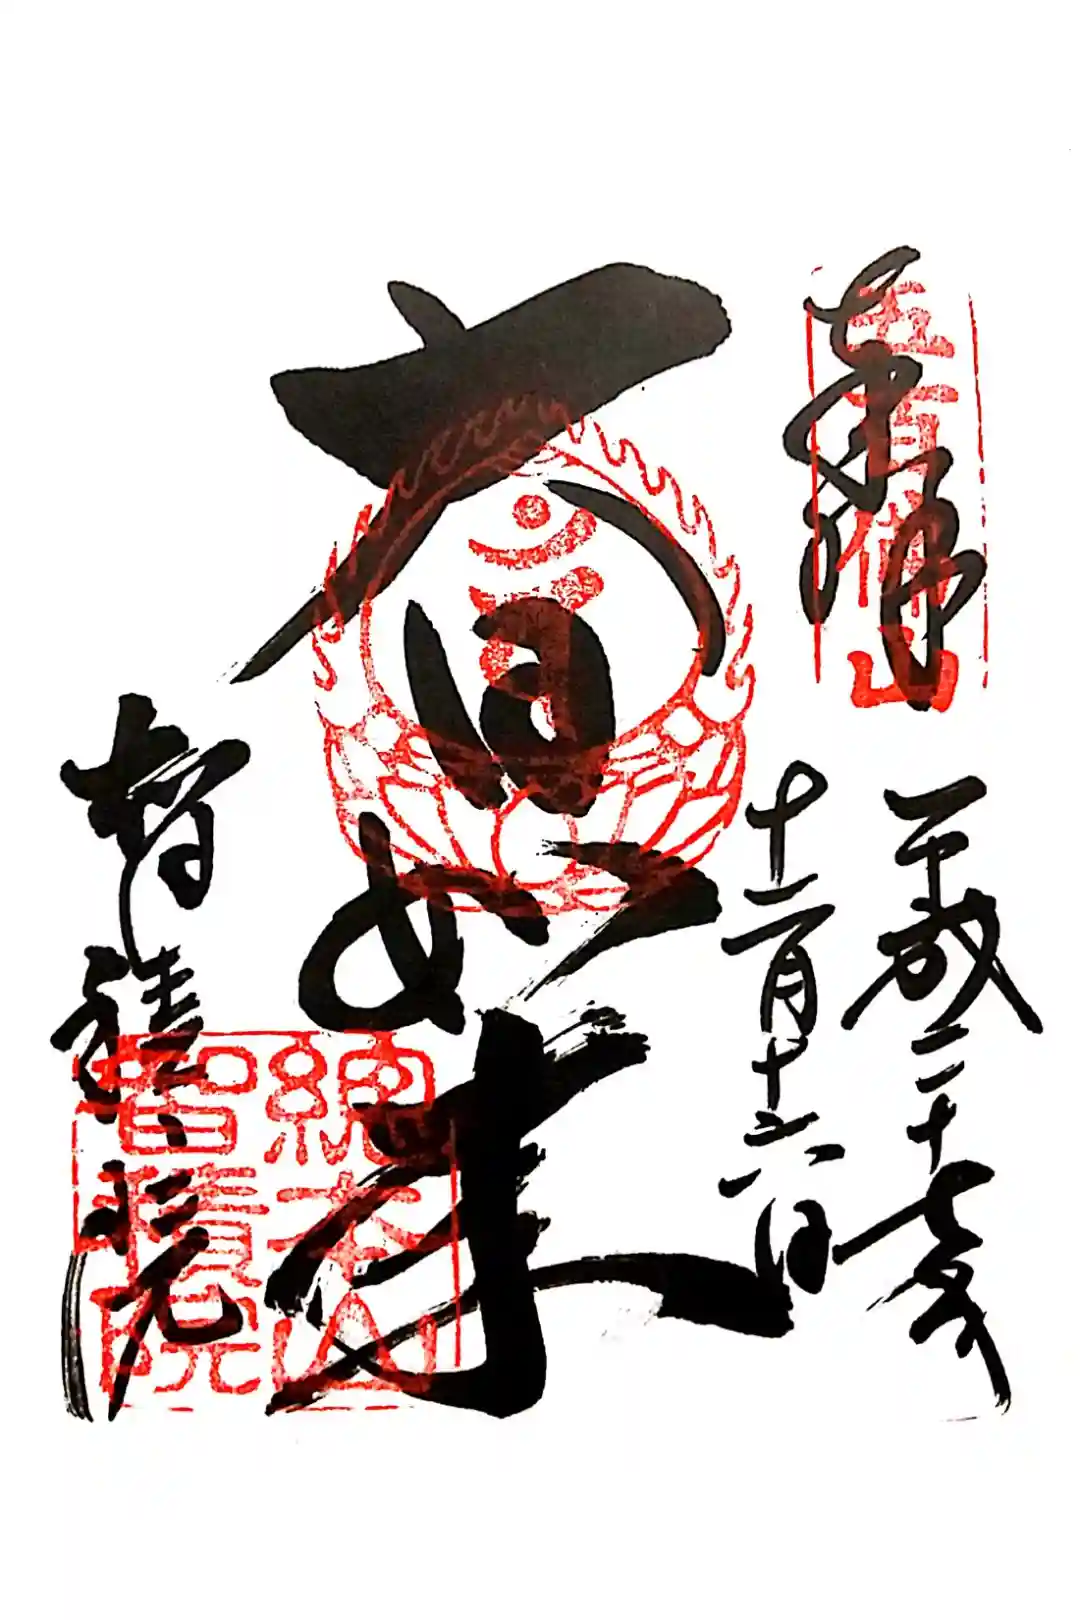 奉拝
五百佛山
平成二十七年
十二月十六日
大日如来
智積院
總本山
智積院